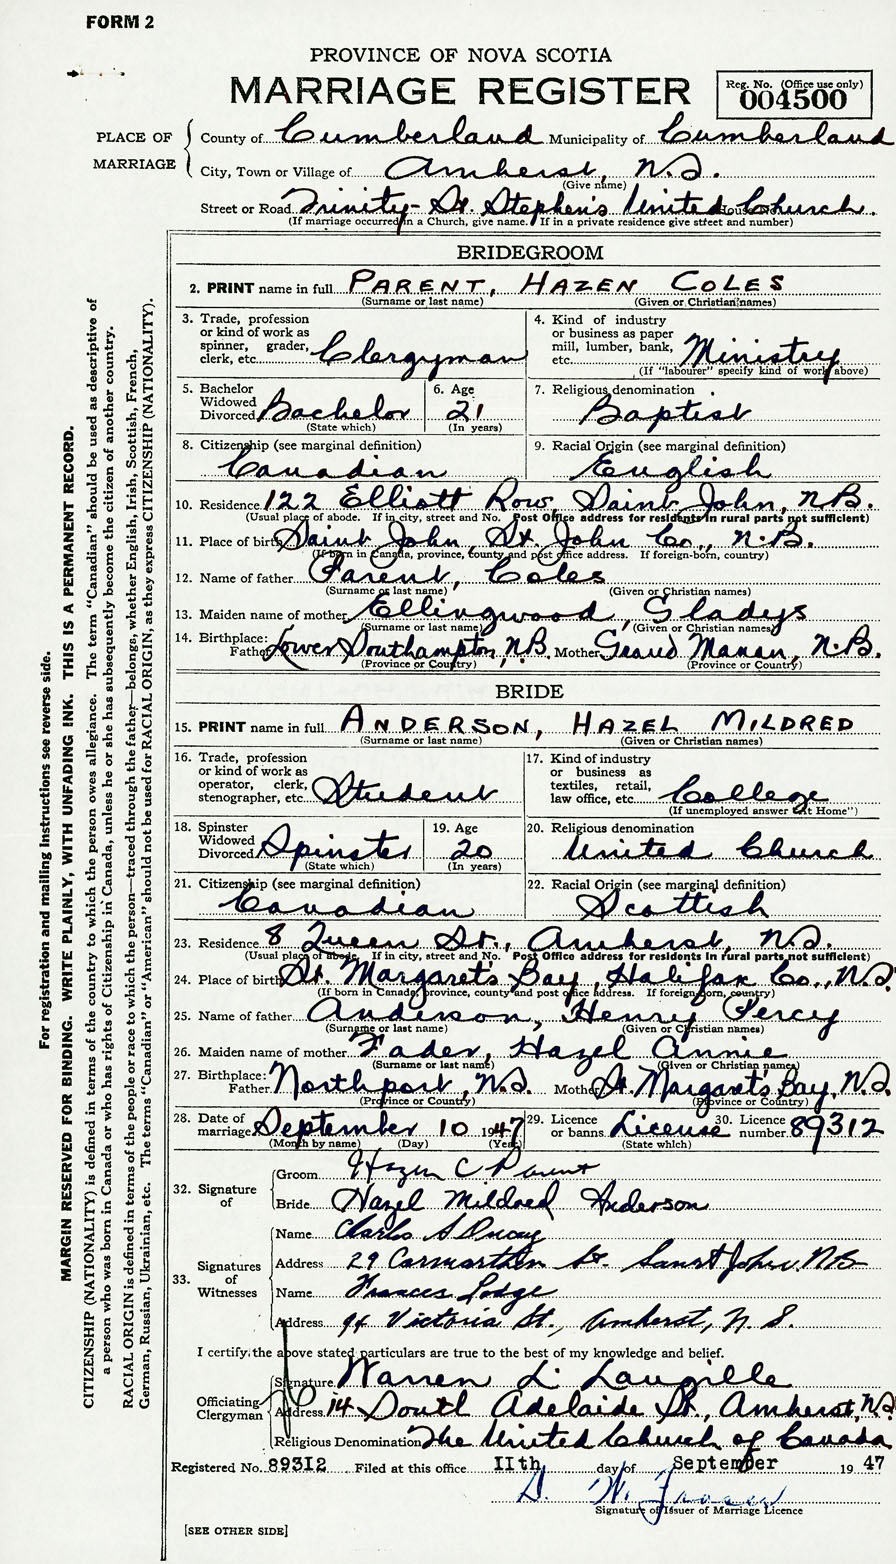 FORM 2
PROVINCE OF NOVA SCOTIA
MARRIAGE REGISTER
Reg. No. (Office use only)
004500
PLACE OF MARRIAGE
County of Cumberland Municipality of Cumberland
City, Town or Village of Amherst, N.S.
(Give name)
Street or Road Trinity-St. Stephen's United Church.
(If marriage occurred in a Church, give name. If in a private residence give street and number)
BRIDEGROOM
2. PRINT name in full PARENT, HAZEN COLES
(Surname or last name) (Given or Christian names)
3. Trade, profession or kind of work as spinner, grader, clerk, etc. Clergyman
4. Kind of industry or business as paper mill, lumber, bank, etc. Ministry
(If "labourer" specify kind of work above)
5. Bachelor Widowed Divorced Bachelor
(State which)
6. Age 21
(In years)
7. Religious denomination
Baptist
8. Citizenship (see marginal definition)
Canadian
9. Racial Origin (see marginal definition)
English
10. Residence 122 Elliott Row, Saint John, N.B.
(Usual place of abode. If in city, street and No. Post Office address for residents in rural parts not sufficient)
11. Place of birth Saint John St. John Co., N.B.
(If born in Canada, province, county and post office address. If foreign-born, country)
12. Name of father Parent, Coles
(Surname or last name) (Given or Christian names)
13. Maiden name of mother Ellingwood, Gladys
(Surname or last name) (Given or Christian names)
14. Birthplace:
Father Lower Southampton, N.B. Mother Grand Manan, N.B.
(Province or Country) (Province or Country)
BRIDE
15. PRINT name in full ANDERSON, HAZEL MILDRED
(Surname or last name) (Given or Christian names)
16. Trade, profession or kind of work as operator, clerk, stenographer, etc. Student
17. Kind of industry or business as textiles, retail, law office, etc. College
(If unemployed answer "At Home")
18. Spinster Widowed Divorced Spinster
(State which)
19. Age 20
(In years)
20. Religious denomination
United Church
21. Citizenship (see marginal definition)
Canadian
22. Racial Origin (see marginal definition)
Scottish
23. Residence 8 Queen St., Amherst, N.S.
(Usual place of abode. If in city, street and No. Post Office address for residents in rural parts not sufficient)
24. Place of birth St. Margaret's Bay, Halifax Co., N.S.
(If born in Canada, province, county and post office address. If foreign-born, country)
25. Name of father Anderson, Henry Percy
(Surname or last name) (Given or Christian names)
26. Maiden name of mother Fader, Hazel Annie
(Surname or last name) (Given or Christian names)
27. Birthplace:
Father Northport, N.S. Mother St. Margaret's Bay, N.S.
(Province or Country) (Province or Country)
28. Date of marriage September 10 1947
(Month by name) (Day) (Year)
29. Licence or banns License
(State which)
30. Licence number 89312
32. Signature of
Groom Hazen C Parent
Bride Hazel Mildred Anderson
33. Signatures of Witnesses
Name Charles A
Address 29 Carmarthen St. Saint John, NB
Name Frances Lodge
Address 94 Victoria St., Amherst, N.S.
I certify the above stated particulars are true to the best of my knowledge and belief.
Officiating Clergyman
Signature Warren L. Langille
Address 14 South Adelaide St., Amherst, N.S.
Religious Denomination The United Church of Canada
Registered No. 89312 Filed at this office 11th day of September 1947
Signature of Issuer of Marriage Licence
[SEE OTHER SIDE]
For registration and mailing instructions see reverse side.
MARGIN RESERVED FOR BINDING. WRITE PLAINLY, WITH UNFADING INK. THIS IS A PERMANENT RECORD.
CITIZENSHIP (NATIONALITY) is defined in terms of the country to which the person owes allegiance. The term "Canadian" should be used as descriptive of
a person who was born in Canada or who has rights of Citizenship in Canada, unless he or she has subsequently become the citizen of another country.
RACIAL ORIGIN is defined in terms of the people or race to which the person—traced through the father—belongs, whether English, Irish, Scottish, French,
German, Russian, Ukrainian, etc. The terms "Canadian" or "American" should not be used for RACIAL ORIGIN, as they express CITIZENSHIP (NATIONALITY).